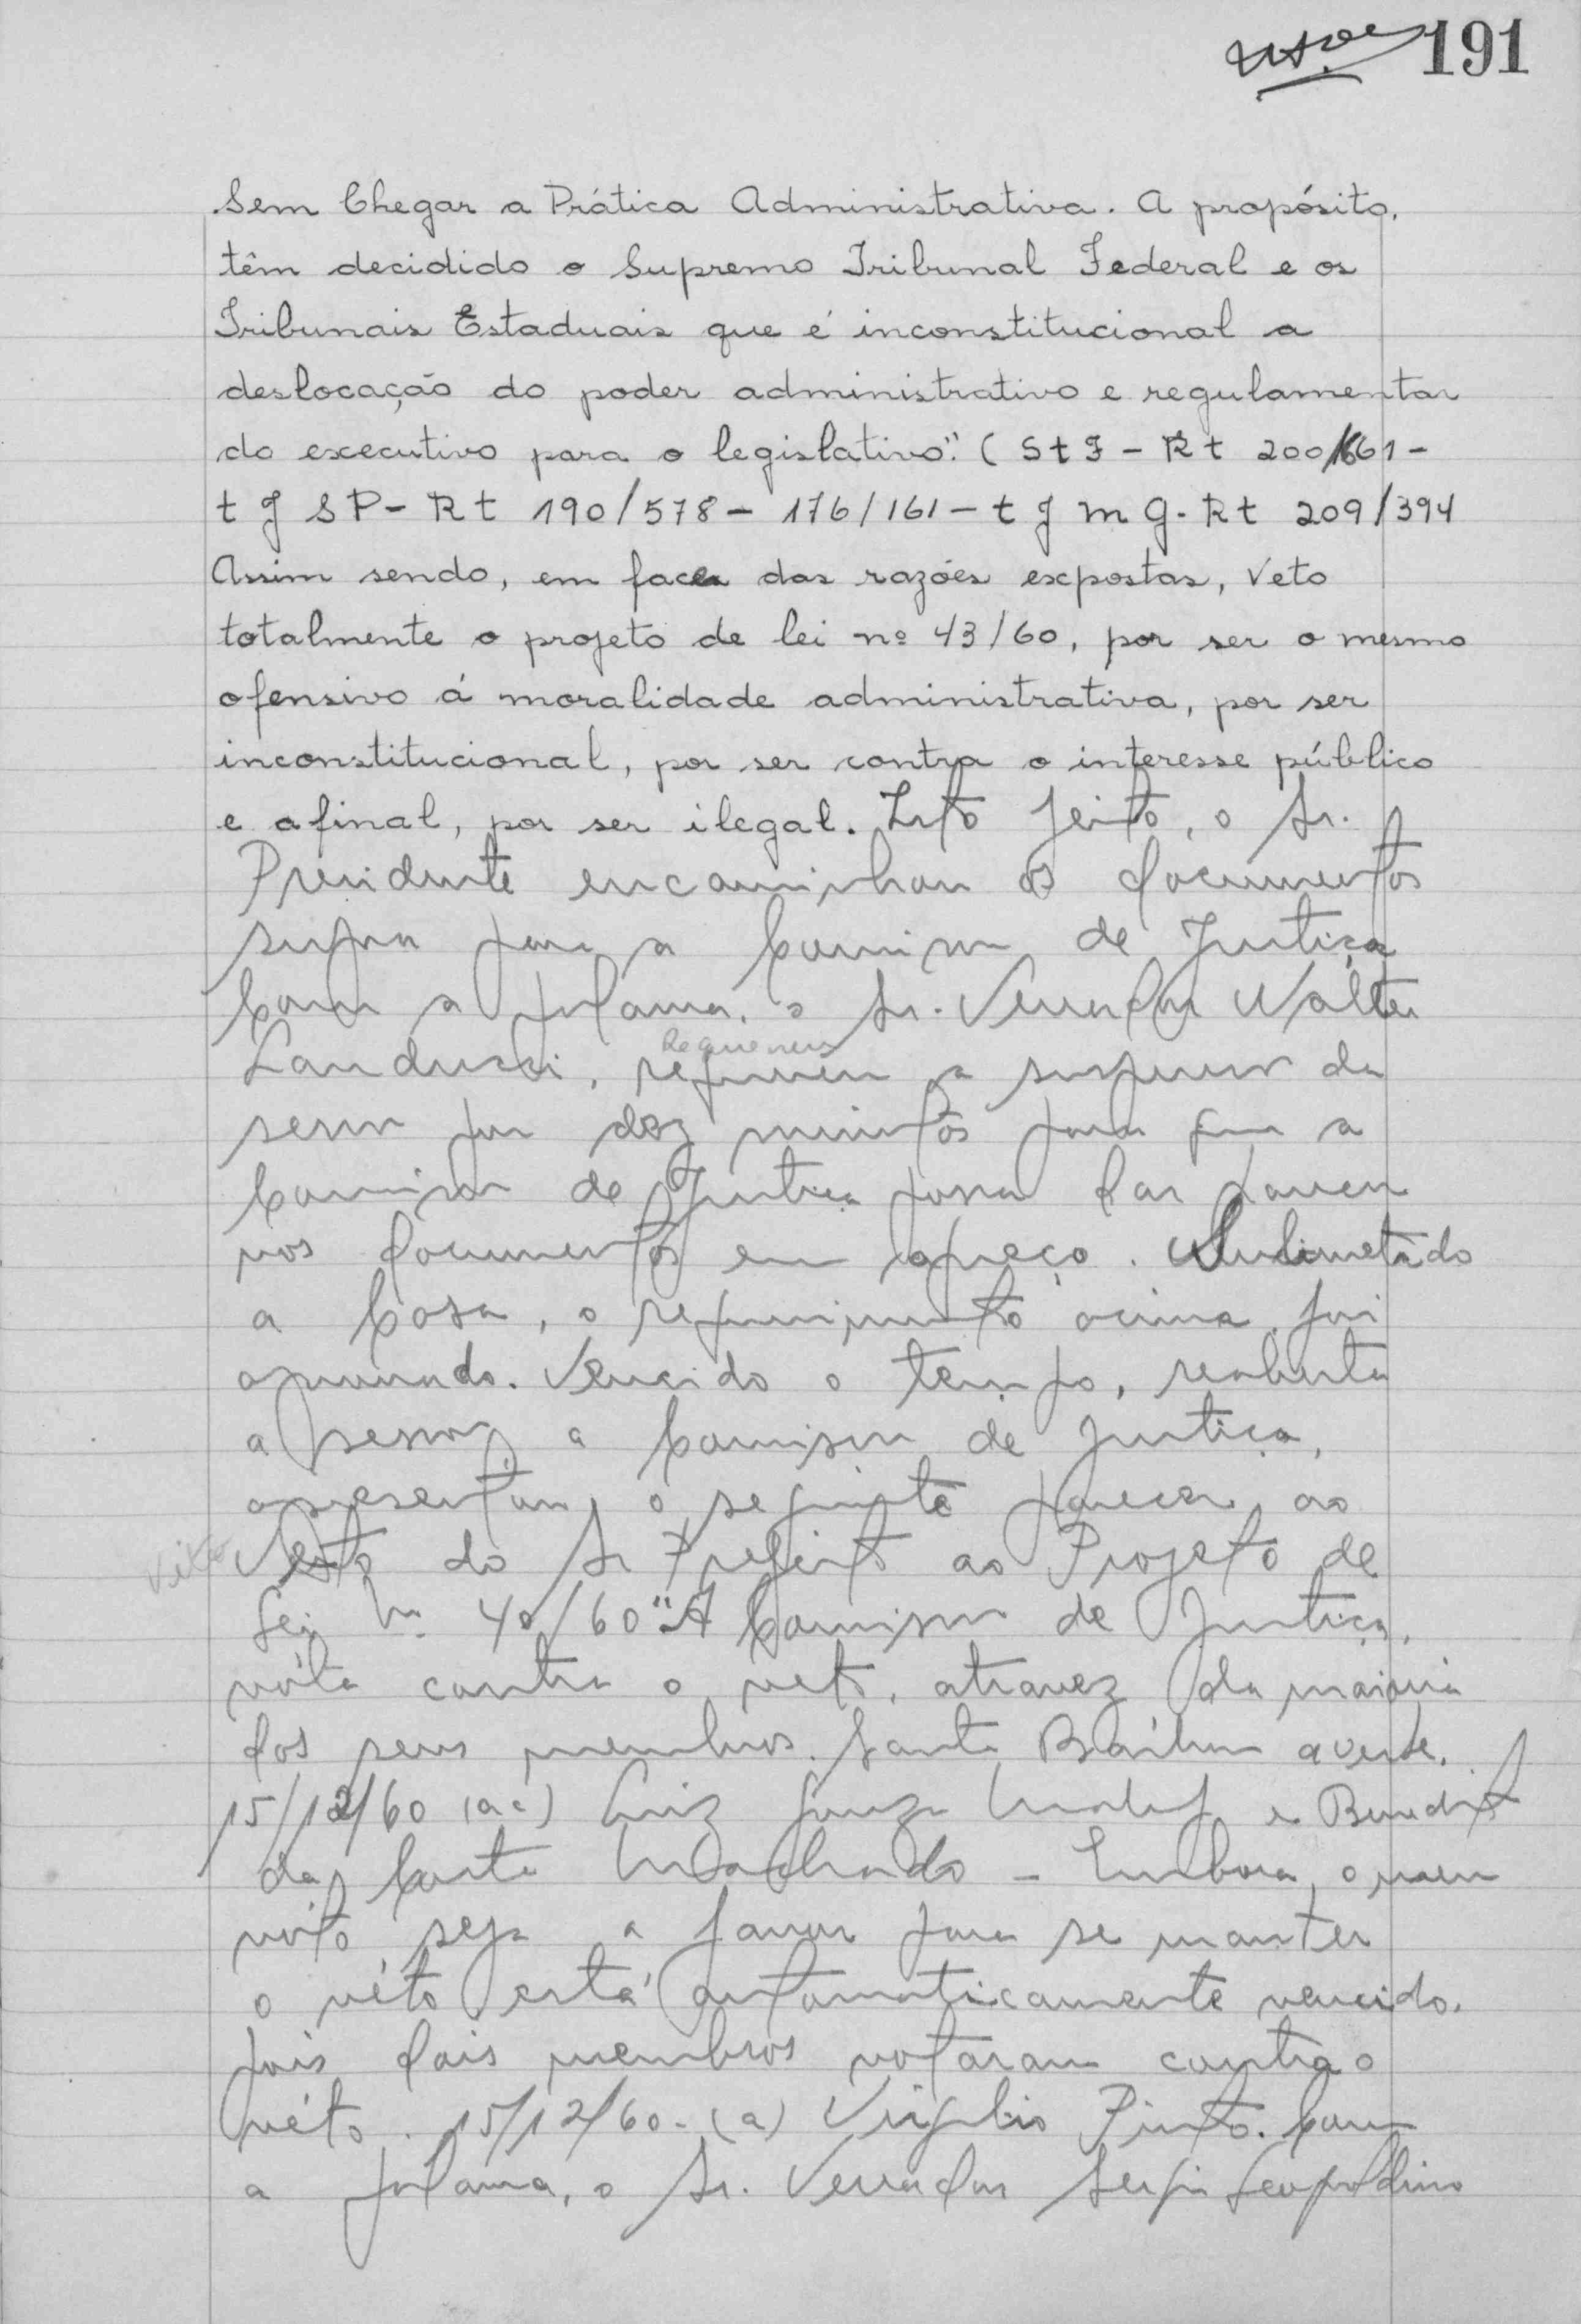 191
Sem Chegar a Prática Administrativa. A propósito,
têm decidido o Supremo Tribunal Federal e os
Tribunais Estaduais que é inconstitucional a
deslocação do poder administrativo e regulamentar
do executivo para o legislativo". (StF - Rt 200/661 -
tJSP - Rt 190/578 - 176/161 - tJMG. Rt 209/394
Assim sendo, em face das razões expostas, Veto
totalmente o projeto de lei nº 43/60, por ser o mesmo
ofensivo á moralidade administrativa, por ser
inconstitucional, por ser contra o interesse público
e afinal, por ser ilegal. Isto feito, o Sr.
Presidente encaminhou os documentos
supra para a Comissão de Justiça
Com a palavra, o Sr. Vereador Walter
Requereu
Landucci, requereu a suspensão da
sessão por dez minutos para que a
Comissão de Justiça possa dar parecer
nos documentos em apreço. Submetido
a Casa, o requerimento acima, foi
aprovado. Vencido o tempo, reaberta
a sessão, a Comissão de Justiça,
apresentou o seguinte parecer, ao
Veto Veto do Sr Prefeito ao Projeto de
Lei nº 40/60 "A Comissão de Justiça,
vóta contra o veto, atravez da maioria
dos seus membros. Santa Bárbara d'oeste.
15/12/60 (aa) Luiz e Benedito
da Costa Machado - Embora, o meu
voto seja a favor para se manter
o véto está automaticamente vencido,
pois dois membros votaram contra o
véto. 15/12/60 - (a) Virgilio Pinto. Com
a palavra, o Sr. Vereador Sergio Leopoldino